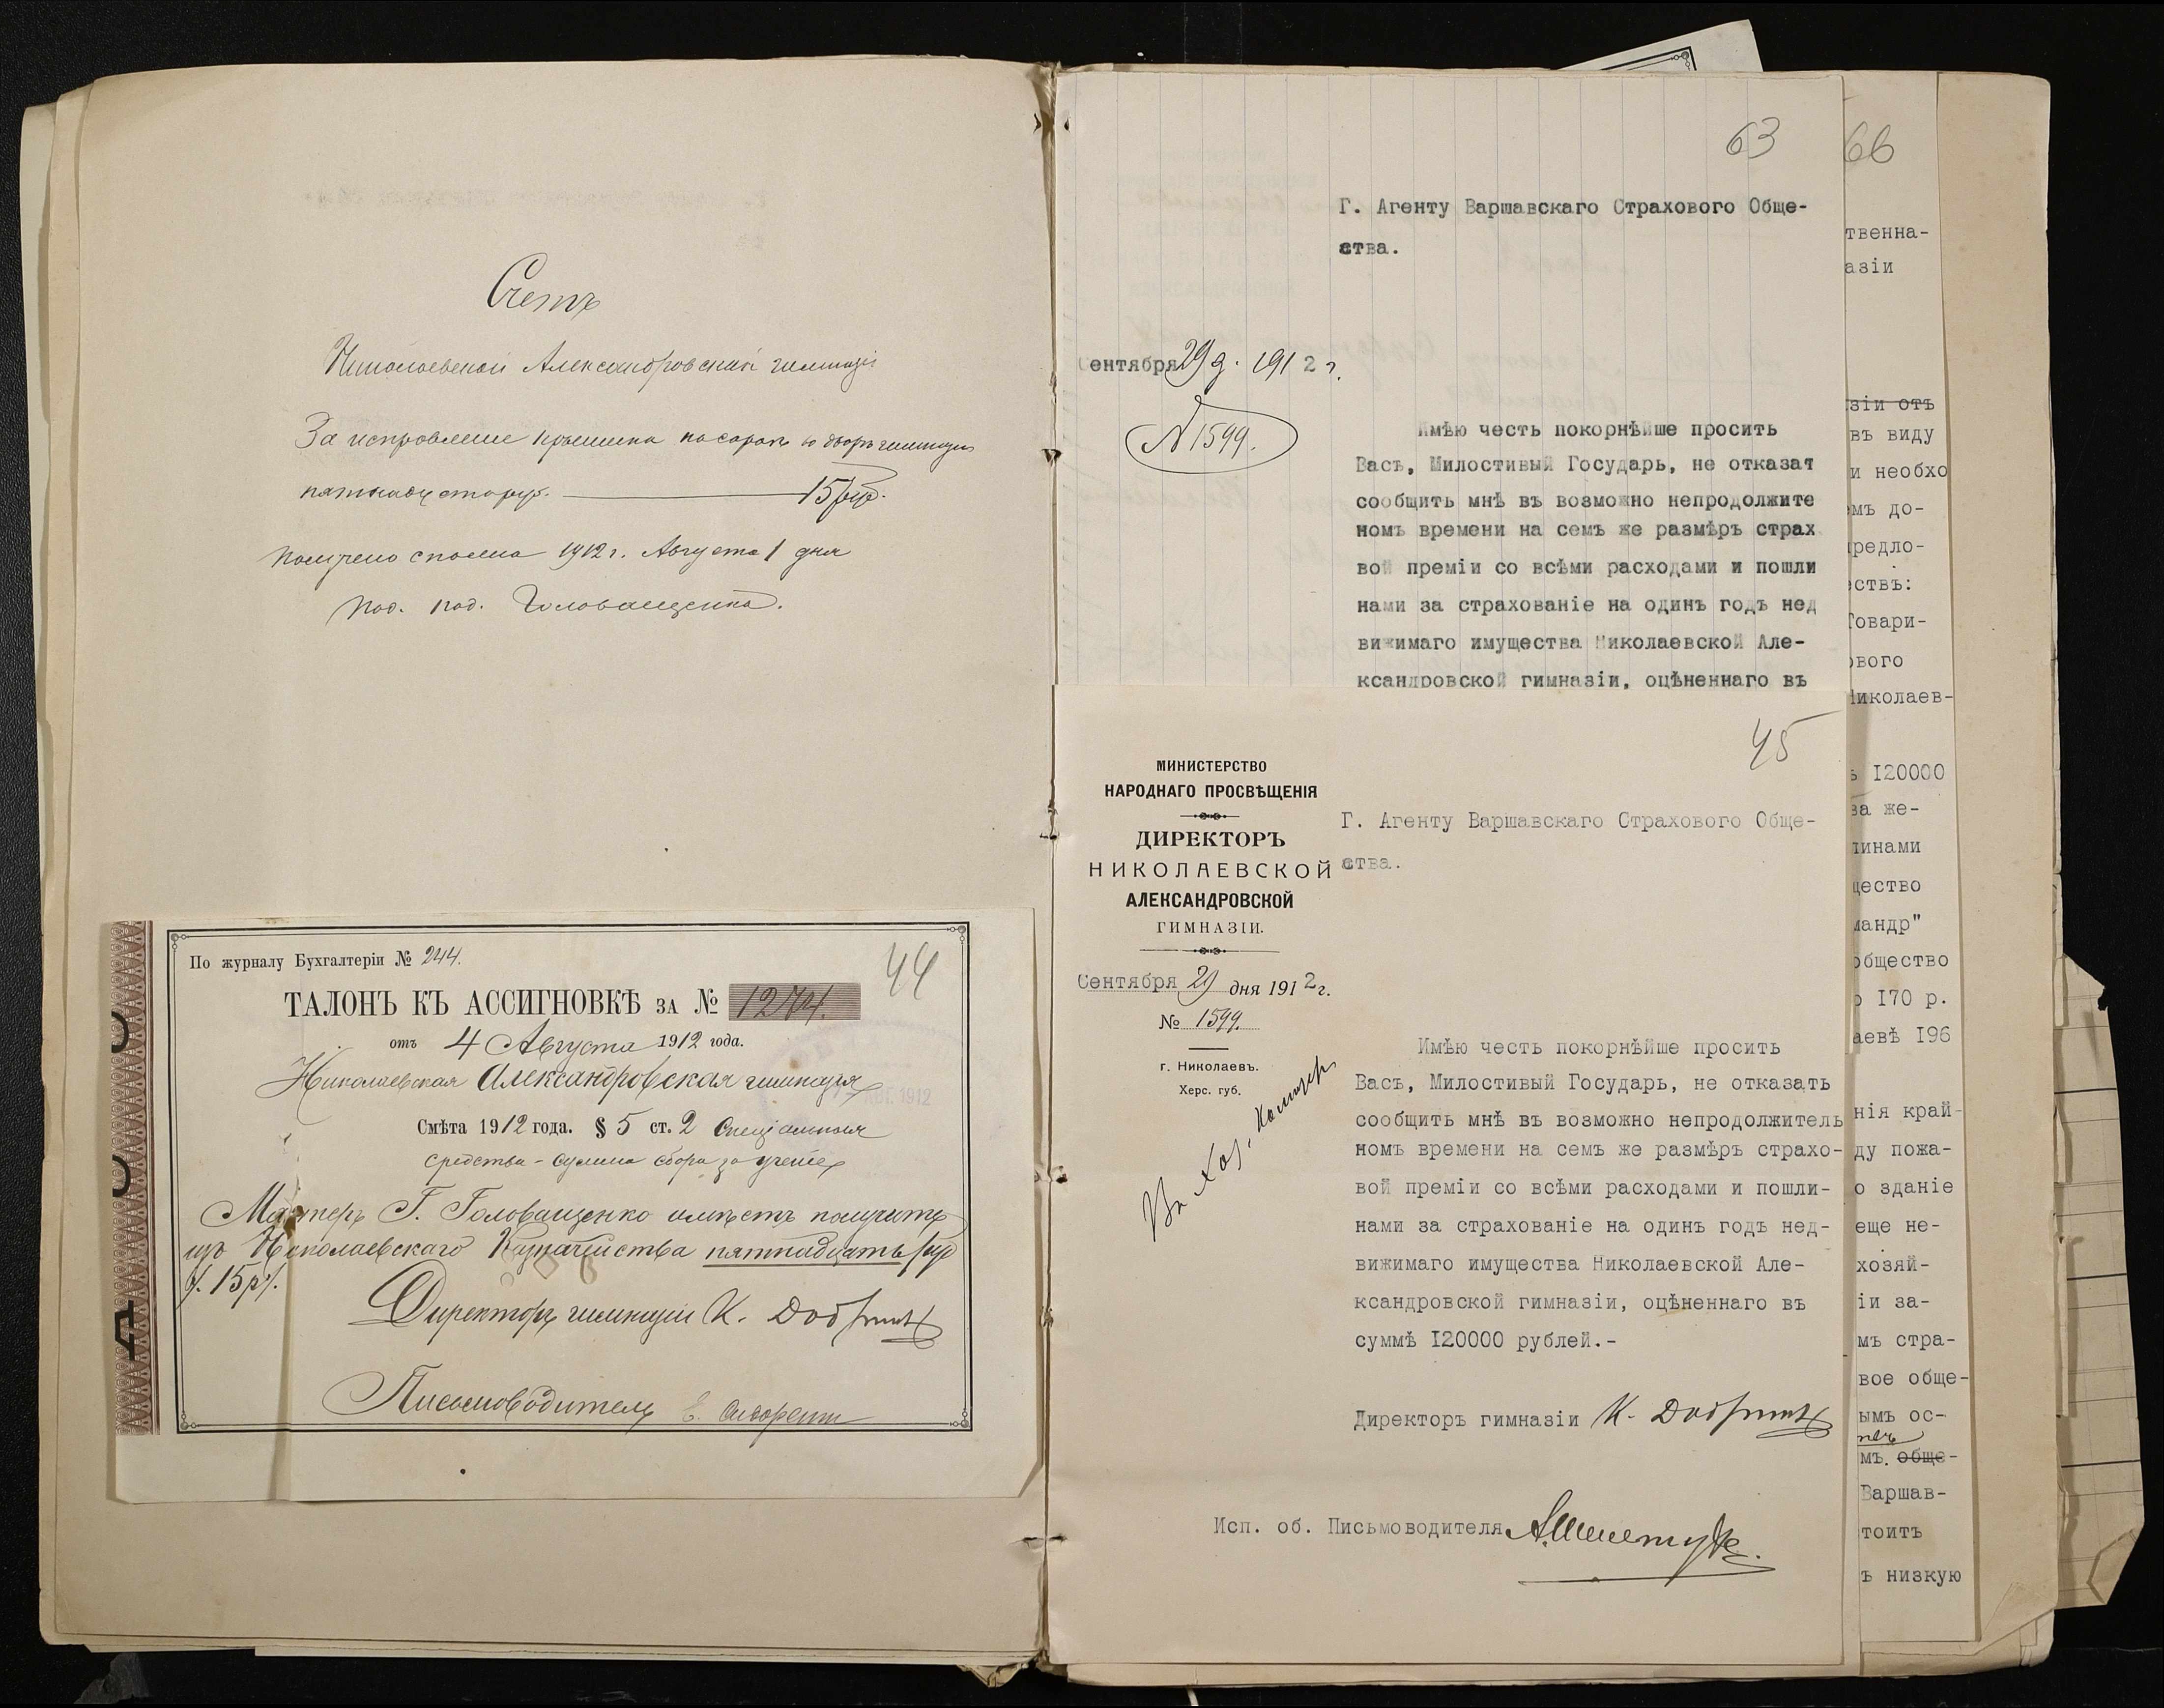 Счетъ
Николаевской Александровской гимназіи
За исправленіе крышика на сараѣ во дворѣ гимназіи
пятнадцать руб. 15 руб.
Получено сполна 1912 г. Августа 1 дня
Под. под. Головащенко.
По журналу Бухгалтеріи № 244.
44
ТАЛОНЪ КЪ АССИГНОВКѢ ЗА № 1274.
отъ 4 Августа 1912 года.
Николаевская Александровская гимназія
Смѣта 1912 года. § 5 ст. 2 Спеціальныя
средства - сумма сбора за ученіе
Мастеръ Г. Головащенко имѣетъ получить
изъ Николаевскаго Казначейства пятнадцать руб
15 р.
Директоръ гимназіи К.
Письмоводитель
63
Г. Агенту Варшавскаго Страхового Обще-
ства.
ентября 29 д. 1912 г.
№ 1599.
Имѣю честь покорнѣйше просить
Васъ, Милостивый Государь, не отказат
сообщить мнѣ въ возможно непродолжите
номъ времени на семъ же размѣръ страх
вой преміи со всѣми расходами и пошли
нами за страхованіе на одинъ годъ нед
вижимаго имущества Николаевской Але-
ксандровской гимназіи, оцѣненнаго въ
45
МИНИСТЕРСТВО
НАРОДНАГО ПРОСВѢЩЕНІЯ
ДИРЕКТОРЪ
НИКОЛАЕВСКОЙ
АЛЕКСАНДРОВСКОЙ
ГИМНАЗІИ.
Сентября 29 дня 1912 г.
№ 1599.
г. Николаевъ.
Херс. губ.
Въ Хоз.
Г. Агенту Варшавскаго Страхового Обще-
ства.
Имѣю честь покорнѣйше просить
Васъ, Милостивый Государь, не отказать
сообщить мнѣ въ возможно непродолжитель
номъ времени на семъ же размѣръ страхо-
вой преміи со всѣми расходами и пошли-
нами за страхованіе на одинъ годъ нед-
вижимаго имущества Николаевской Але-
ксандровской гимназіи, оцѣненнаго въ
суммѣ I20000 рублей.-
Директоръ гимназіи К.
Исп. об. Письмоводителя
66
твенна-
азіи
зіи отъ
въ виду
и необхо
мъ до-
редло-
ствъ:
Товари-
ового
Николаев-
ъ I20000
за же-
линами
щество
мандр"
общество
о I70 р.
аевѣ I96
нія край-
ду пожа-
о зданіе
еще не-
хозяй-
іи за-
мъ стра-
вое обще-
ымъ ос-
мъ. обще-
Варшав-
тоитъ
ъ низкую